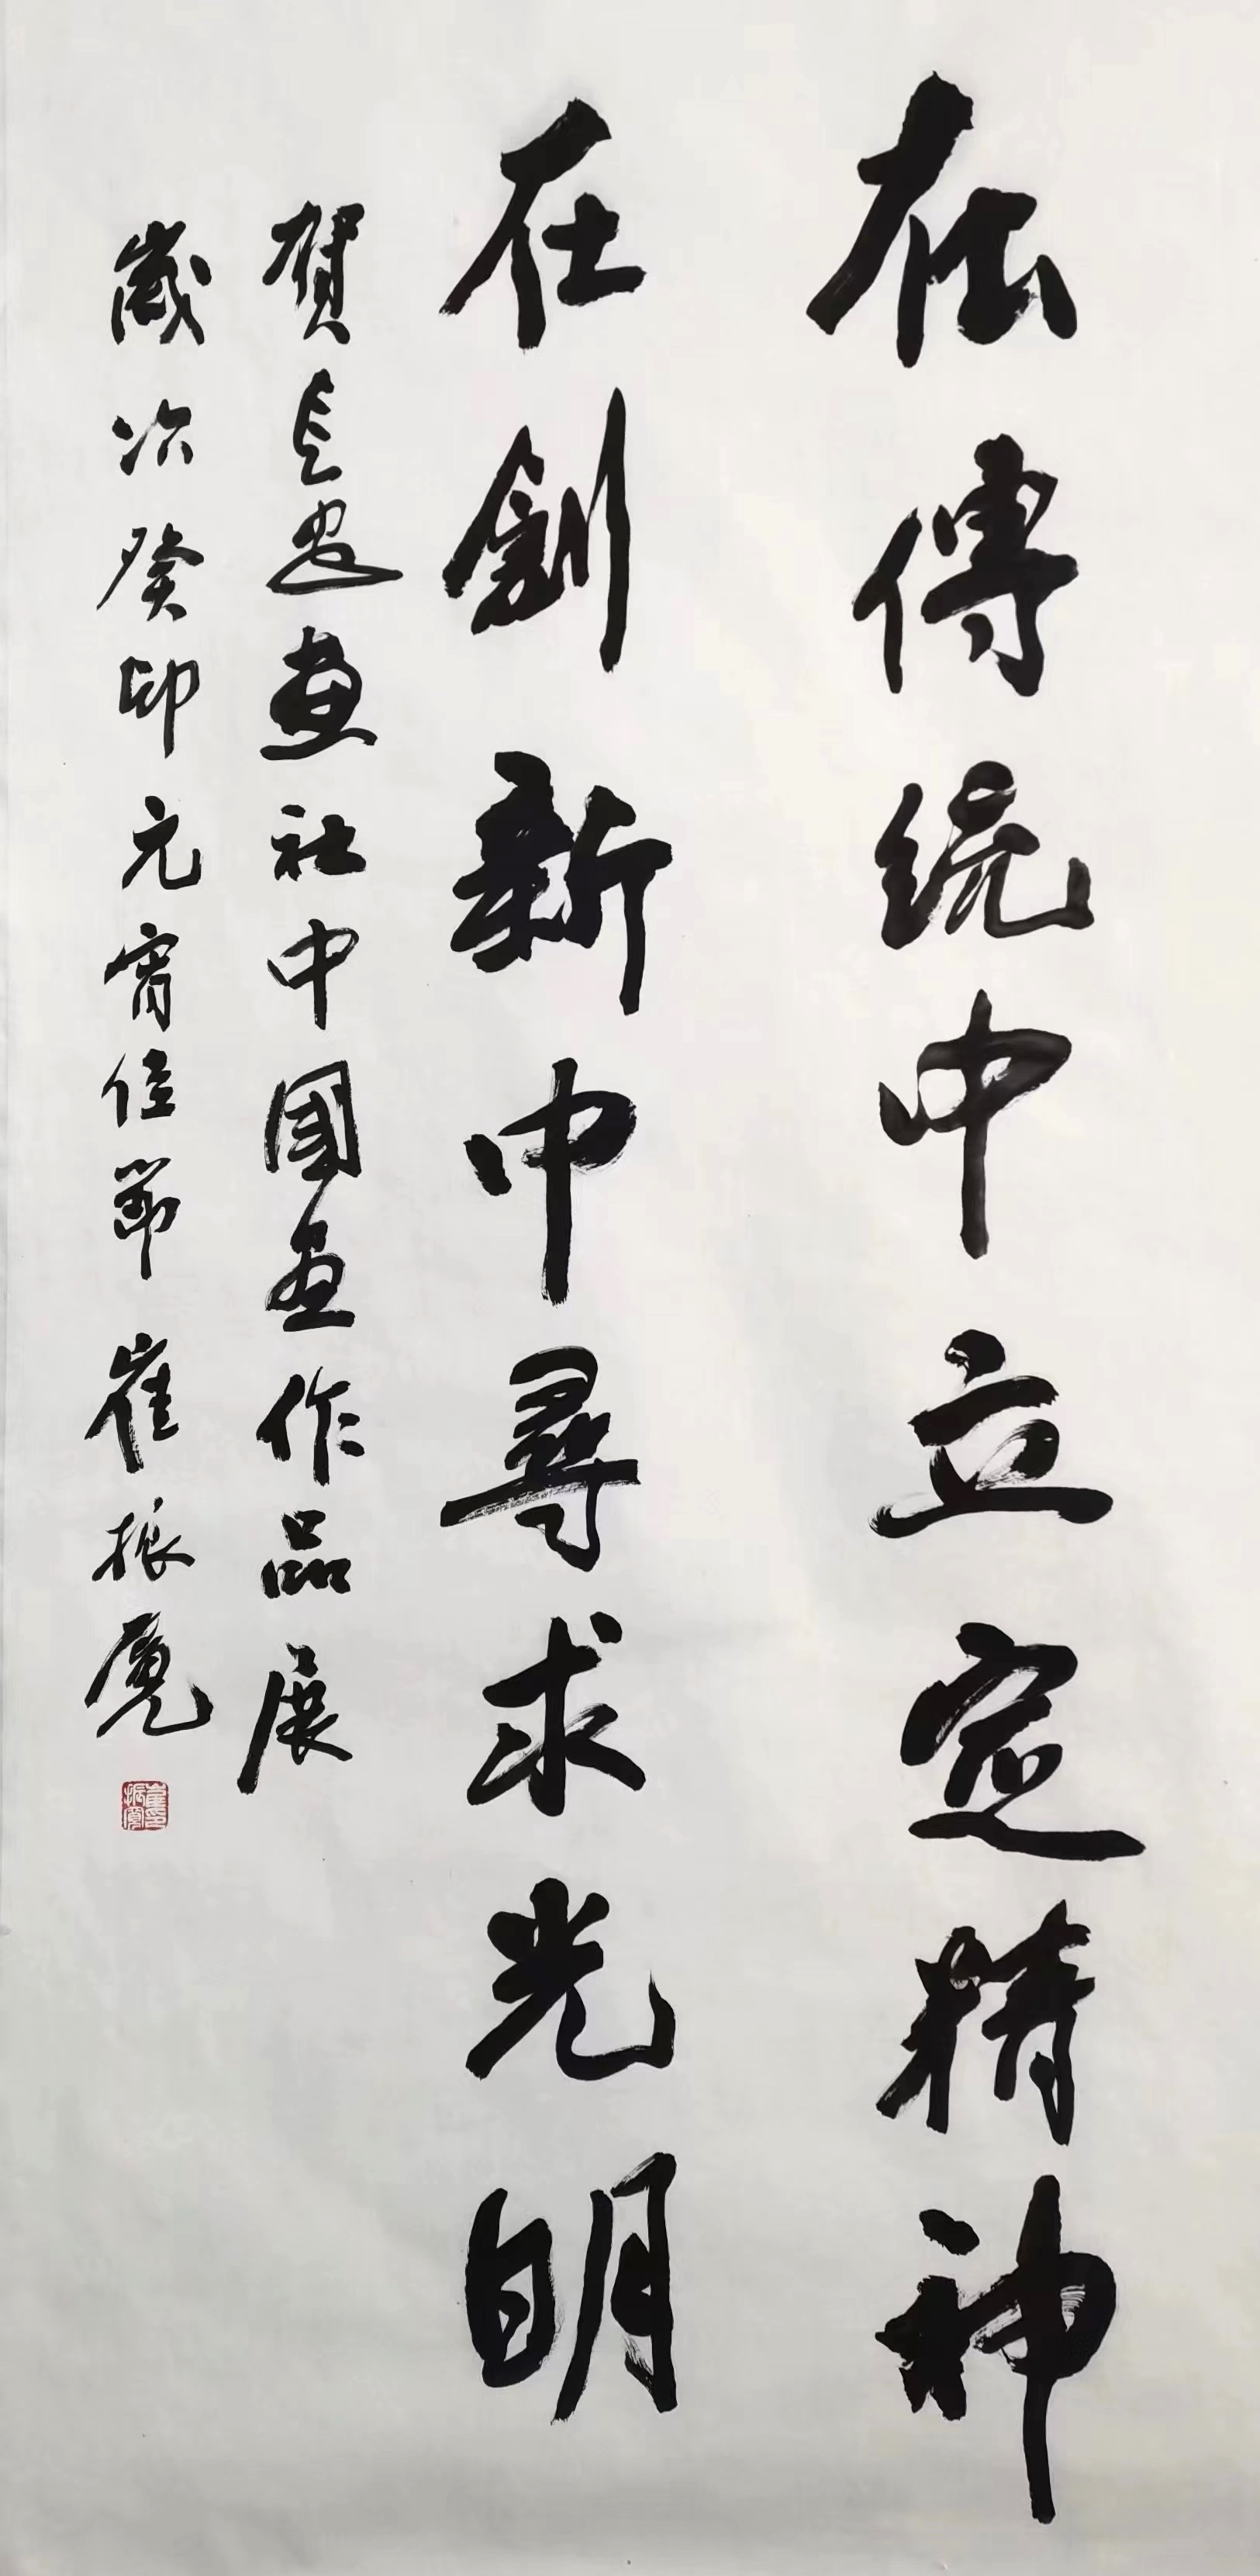 在傳統中立定精神
在創新中尋求光明
賀長安畫社中國畫作品展
歲次癸卯元宵佳節崔振寬
崔振寬印